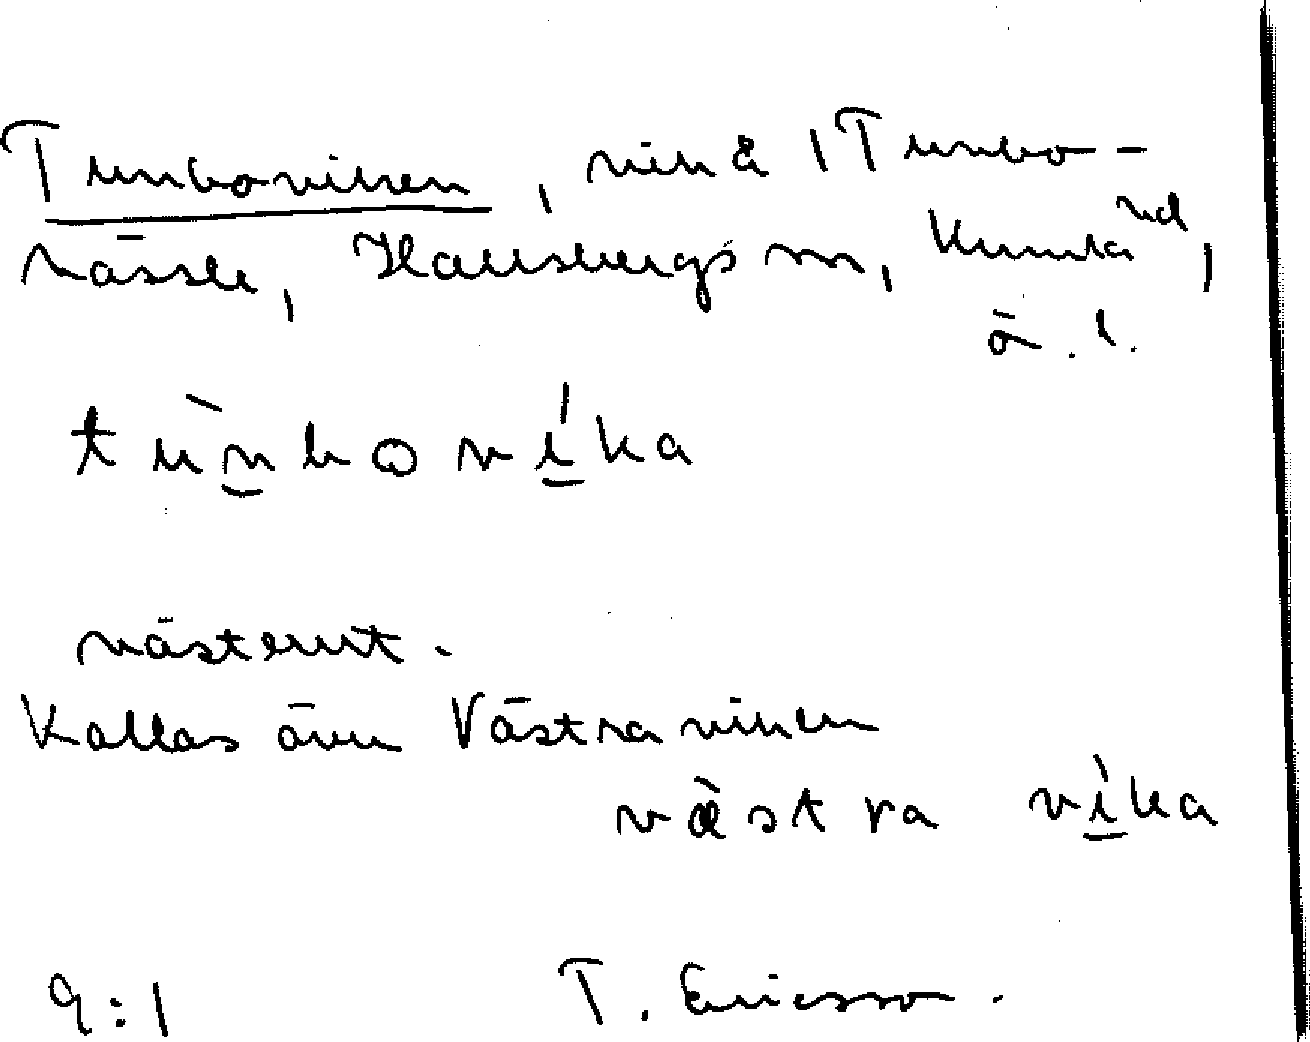 Tunboviken, vik å 1 Tunbo-
nässle, Hallsbergs sn, Kumla hd,
ö. l.
tùnbovíka
västerut.
Kallas även Västra viken
vä̀stra vìka
9:1 T. Ericsson.